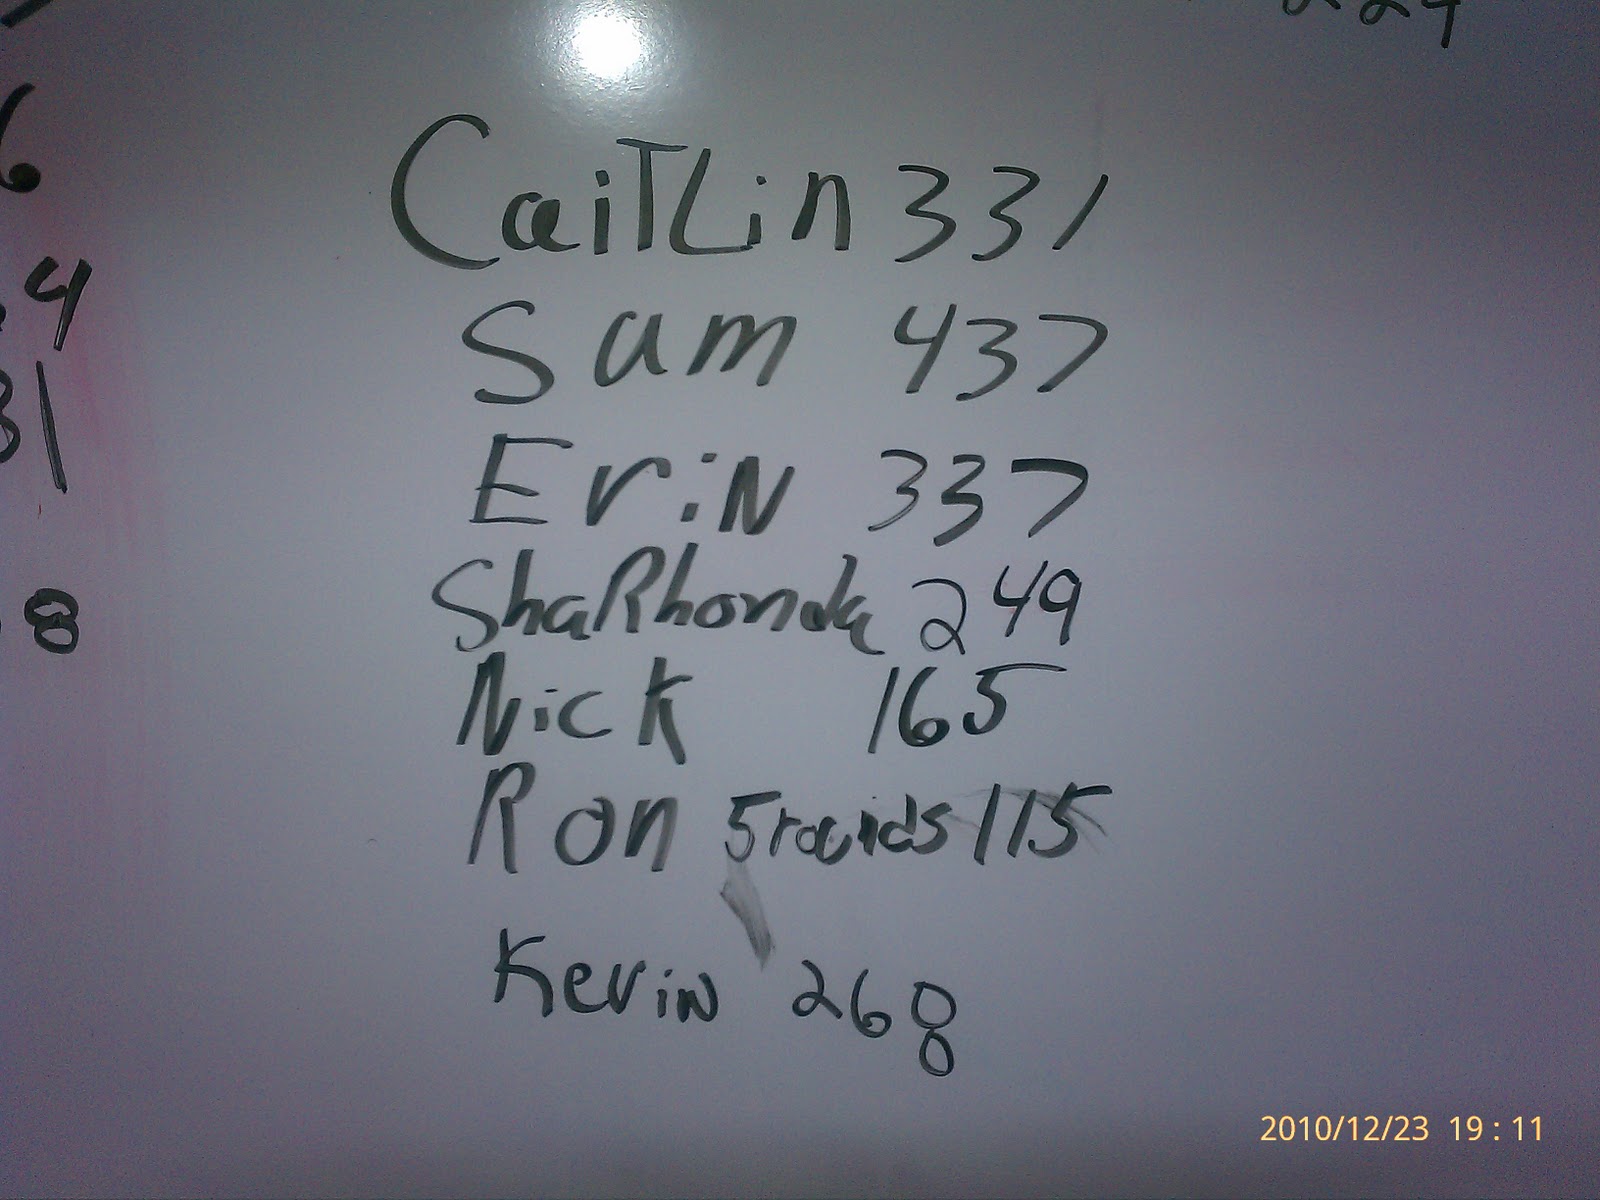 229
6
4
31
8
CaiTLin 331
Sam 437
EriN 337
ShaRhonda 249
Nick 165
Ron 5rounds 115
KeviN 268
2010/12/23 19:11